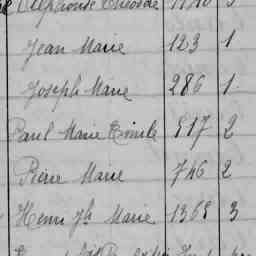 Alphonse Théodore
Jean Marie 123 1
Joseph Marie 286 1
Paul Marie Emile 817 2
Pierre Marie 746 2
Henri Jh Marie 1368 3